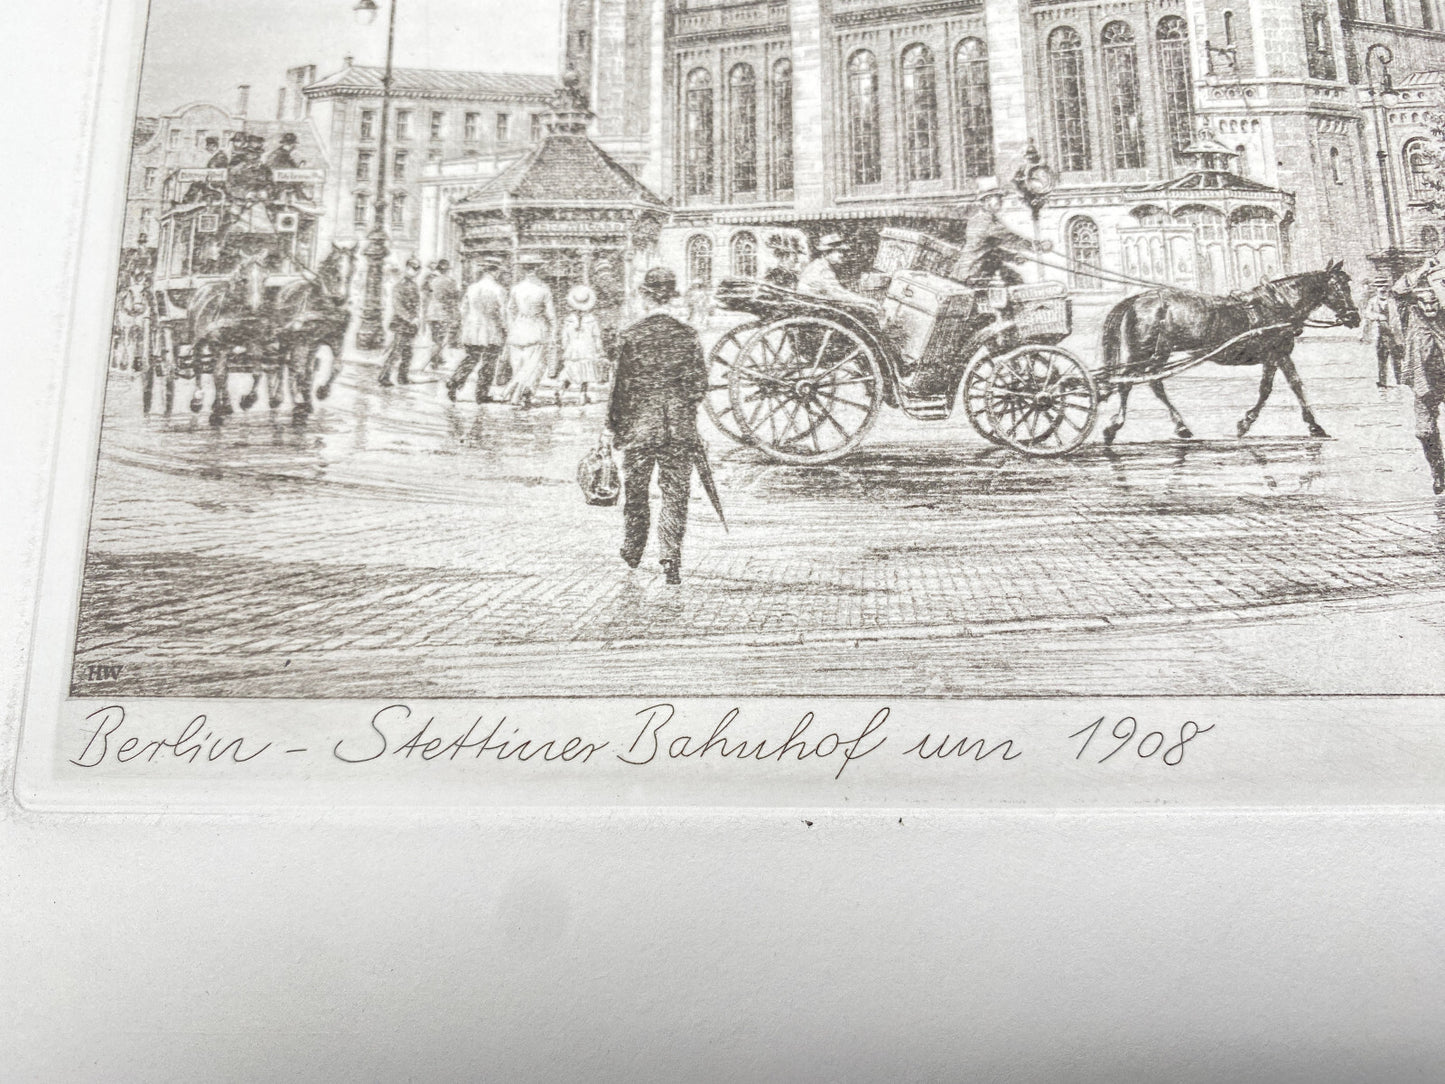 HW
Berlin - Stettiner Bahnhof um 1908